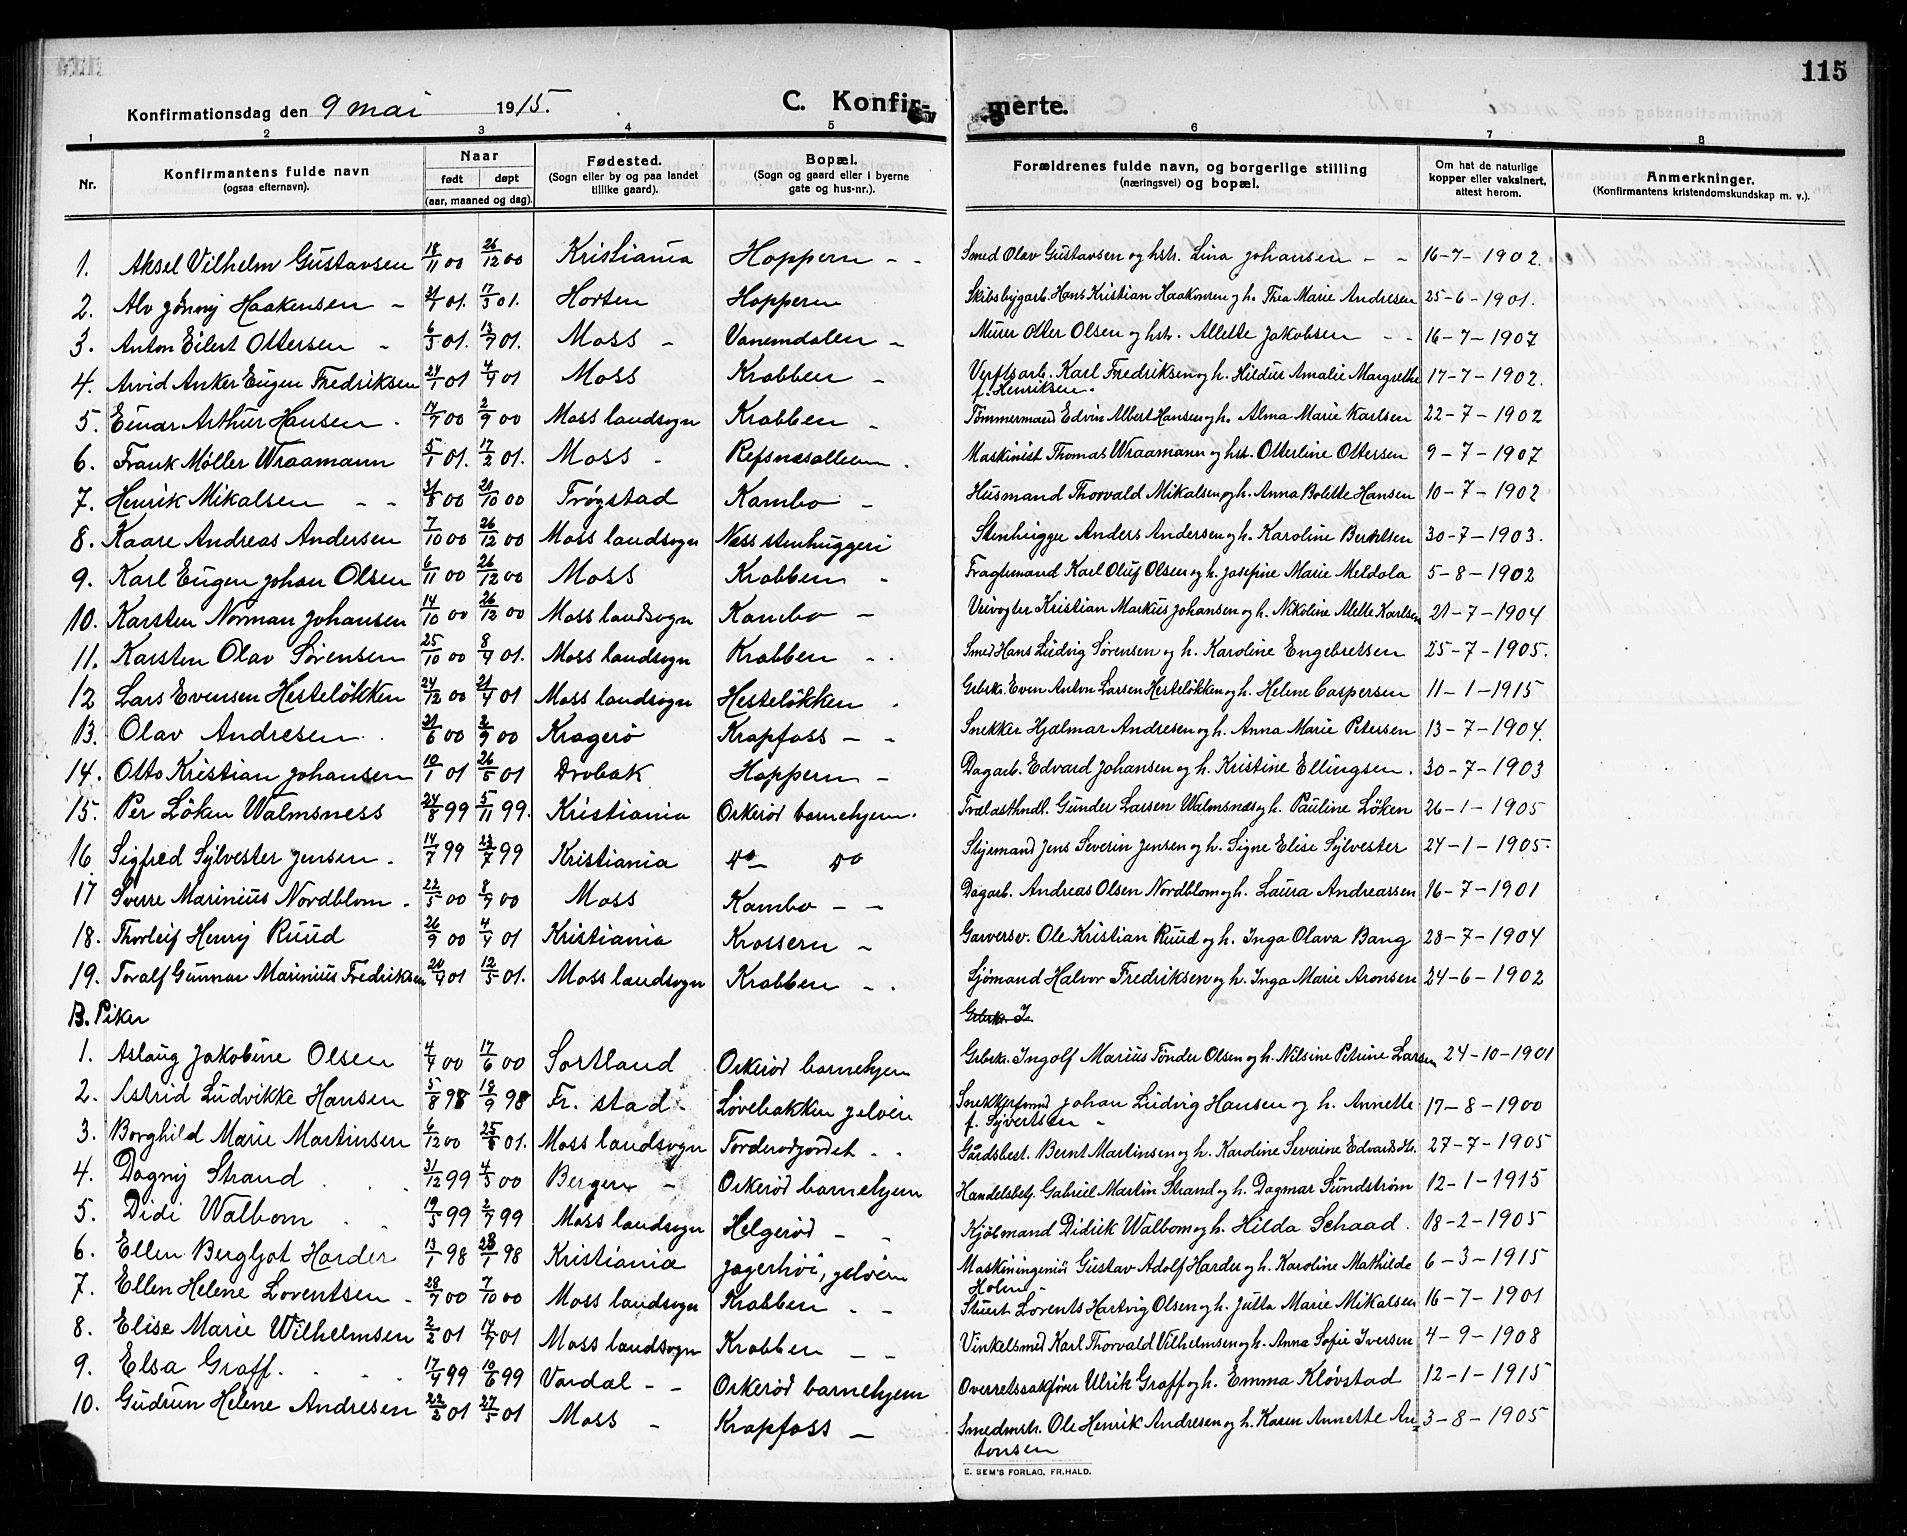 115
Konfirmationsdag den 9 mai 1915. C. Konfir- merte.
1 2 3 4 5 6 7 8
Nr. Konfirmantens fulde navn (ogsaa efternavn). Naar født døpt (aar, maaned og dag). Fødested. (Sogn eller by og paa landet tillike gaard). Bopæl. (Sogn og gaard eller i byerne gate og hus-nr.). Forældrenes fulde navn, og borgerlige stilling (næringsvei) og bopæl. Om hat de naturlige kopper eller vaksinert, attest herom. Anmerkninger. (Konfirmantens kristendomskundskap m. v.).
1. Aksel Vilhelm Gustavsen 18/11 00 26/12 00 Kristiania Hoppern - - Smed Olav Gustavsen og hstr. Lina Johansen - - 16-7-1902.
2. Alv Jönnij Haakensen - 01. 17/3 01. Horten Hoppern Skibsbygarb. Hans Kristian Haakonsen og h. Thea Marie Andresen 25-6-1901.
3. Anton Eilert Ottersen - 6/3 01. 01. Moss - Vanemdalen - Murer Otter Olsen og hstr. Allette Jakobsen - - 16-7-1907
4. Arvid Anker Eugen Fredriksen 24/1 01 4/4 01 Moss Krabben - Verftsarb. Karl Fredriksen og h. Hildur Amalie Margrethe 17-7-1902.
f. Henriksen -
5. Einar Arthur Hansen. 00 2/9 00 Moss landsogn Krabben - Tömmermand Edvin Albert Hansen og h. Alma Marie Karlsen 22-7-1902
6. Frank Møller Wraamann 5/1 01. 17/2 01. Moss - Refsnesalleen. Maskinist Thomas Wraamann og hst. Otterline Ottersen 9-7-1907
7. Henrik Mikalsen - - 31/8 00 00 Trøgstad Kambo - Husmand Thorvald Mikalsen og h. Anna Bolette Hansen 10-7-1902
8. Kaare Andreas Andersen 7/10 00 26/12 00 Moss landsogn Næss stenhuggeri Stenhugger Anders Andersen og h. Karoline Berntsen 30-7-1903.
9. Karl Eugen Johan Olsen 6/11 00 26/12 00 Moss Krabben - Fragtemand Karl Oluf Olsen og h. Josefine Marie Meldola 5-8-1902
10. Karsten Norman Johansen 14/10 00 26/12 00 Moss landsogn Kambo - Veivogter Kristian Markus Johansen og h. Nikoline Alette Karlsen 21-7-1904
11. Karsten Olav Sörensen 25/10 00 8/4 01. Moss landsogn Krabben - . Smed Hans Ludvig Sørensen og h. Karoline Engebretsen 25-7-1905.
12 Lars Evensen Hestelökken 24/12 00 21/4 01 Moss landsogn Hestelökken . Grbrk. Even Anton Larsen Hestelökken og h. Helene Caspersen 11-1-1915
13. Olav Andresen . 21/6 00 2/9 00 Kragerö Krapfoss - - Snekker Hjalmar Andresen og h. Anna Marie Petersen 13-7-1904.
14. Otto Kristian Johansen 10/1 01 26/5 01 Drøbak Hoppern - Dagarb. Edvard Johansen og h. Kristine Ellingsen. 30-7-1903
15. Per Löken Walmsness 24/8 99 5/11 99. Kristiania Orkerød barnehjem. Trælasthndl. Gunder Larsen Walmsnes og h. Pauline Löken 26-1-1905
16 Sigfred Sylvester Jensen. 14/7 99 23/7 99 Kristiania do - do Styrmand Jens Severin Jensen og h. Signe Elise Sylvester 24-1-1905-
17 Sverre Marinius Nordblom. 22/5 00 00 Moss Kambo - - Dagarb. Andreas Olsen Nordblom og h. Laura Andreassen 16-7-1901
18. Thorleif Henry Ruud 26/9 00 4/4 01 Kristiania Krossern - Garversv. Ole Kristian Ruud og h. Inga Olava Bang 28-7-1904
19. Toralf Gunnar Marinius Fredriksen 01 12/5 01. Moss landsogn Krabben - . Sjömand Halvor Fredriksen og h. Inga Marie Aronsen 24-6-1902
B. Piker Grbrk. I.
1. Aslaug Jakobine Olsen 4/4 00 17/6 00 Sortland Orkerød barnehjem Grbrk. Ingolf Marius Tönder Olsen og h. Nilsine Petrine Larsen 24-10-1901
2. Astrid Ludvikke Hansen 5/8 98 18/9 98 Fr. stad - Løvebakken jeløen Snekkerformd Johan Ludvig Hansen og h. Annette 17-8-1900
f. Syvertsen -
3. Borghild Marie Martinsen 6/12 00 01. Moss landsogn Torderødjordet - . Gårdsbest. Bernt Martinsen og h. Karoline Severine Edvardsdtr. 27-7-1905
4. Dagny Strand . . 31/12 99 4/5 00 Bergen - Orkerød barnehjem Handelsbetj. Gabriel Martin Strand og h. Dagmar Sundström 12-1-1915
5. Didi Walbom . . 19/5 99 2/7 99 Moss landsogn Helgerød - - Kjöbmand Didrik Walbom og h. Hilda Schaad. 18-2-1905
6. Ellen Bergljot Harder 13/1 98 98 Kristiania Jagerhöi, jeløen Maskiningeniör Gustav Adolf Harder og h. Karoline Mathilde 6-3-1915
Holm -
7. Ellen Helene Lorentsen - 00 7/10 00 Moss landsogn Krabben - - Stuert Lorents Hartvig Olsen og h. Jutta Marie Mikalsen 16-7-1901
8. Elise Marie Wilhelmsen 2/2 01 01 Moss landsogn Krabben - - Vinkelsmed Karl Thorvald Vilhelmsen og h. Anna Sofie Iversen 4-9-1908
9. Elsa Graff. . . . 17/4 99 10/6 99 Vardal - - Orkerød barnehjem Overretssakfører Ulrik Graff og h. Emma Kløvstad 12-1-1915
10. Gudrun Helene Andresen 22/2 01 27/5 01 Moss - Krapfoss - Smedmstr. Ole Henrik Andresen og h. Karen Annette An= 3-8-1905
tonsen
E. SEM'S FORLAG, FR.HALD.